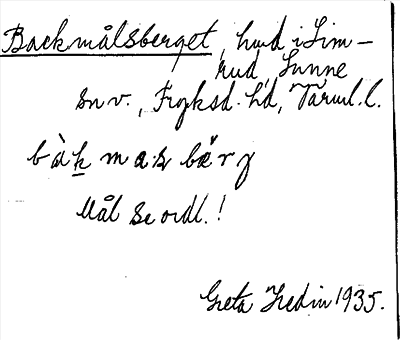 Backmålsberget, hmd i Lim-
rud, Sunne
sn v., Fryksd. hd, Värml. l.
bàk ma:s bärg
Mål se ordl.!
Greta Hedin 1935.